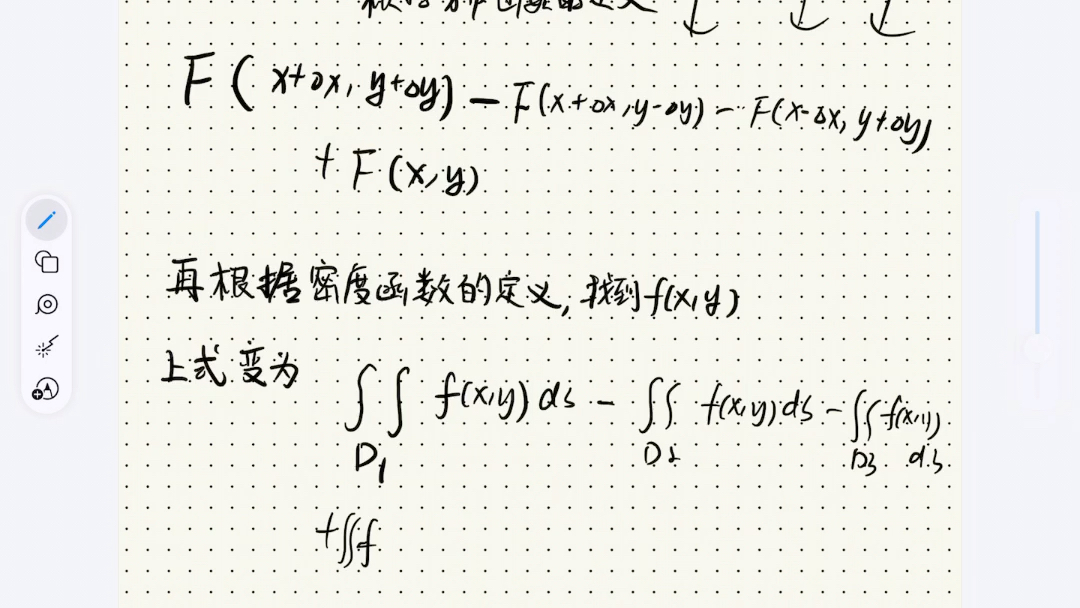 F(x+Δx, y+Δy) - F(x+Δx, y-Δy) - F(x-Δx, y+Δy)
+ F(x,y)
再根据密度函数的定义, 找到f(x,y)
上式变为 ∬ f(x,y) ds - ∬ f(x,y) ds - ∬ f(x,y)
D1 D2 D3 ds
+∬f